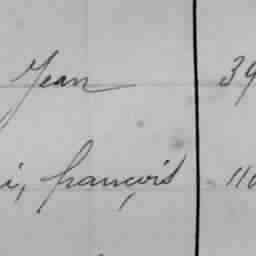 Jean 39
i, françois 110